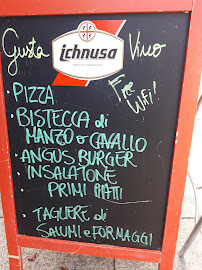 ichnusa
Gusta Vino
Free
WiFi!
• PIZZA
• BISTECCA di
MANZO o CAVALLO
• ANGUS BURGER
• INSALATONE
• PRIMI PIATTI
• TAGLIERE di
SALUMI e FORMAGGI